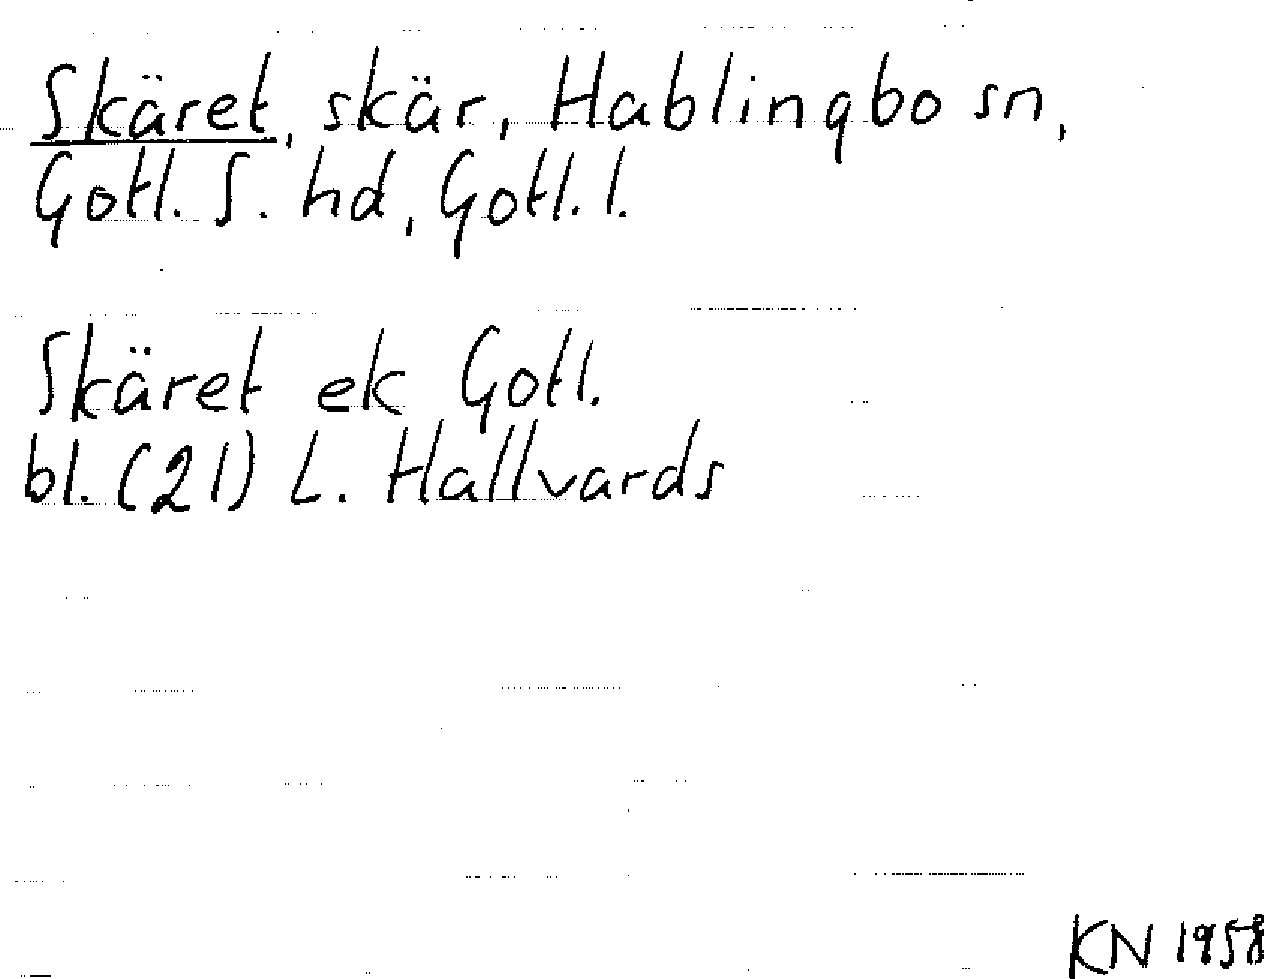 Skäret, skär, Hablingbo sn,
Gotl. S. hd, Gotl. l.
Skäret ek Gotl.
bl. (21) L. Hallvards
KN 1958